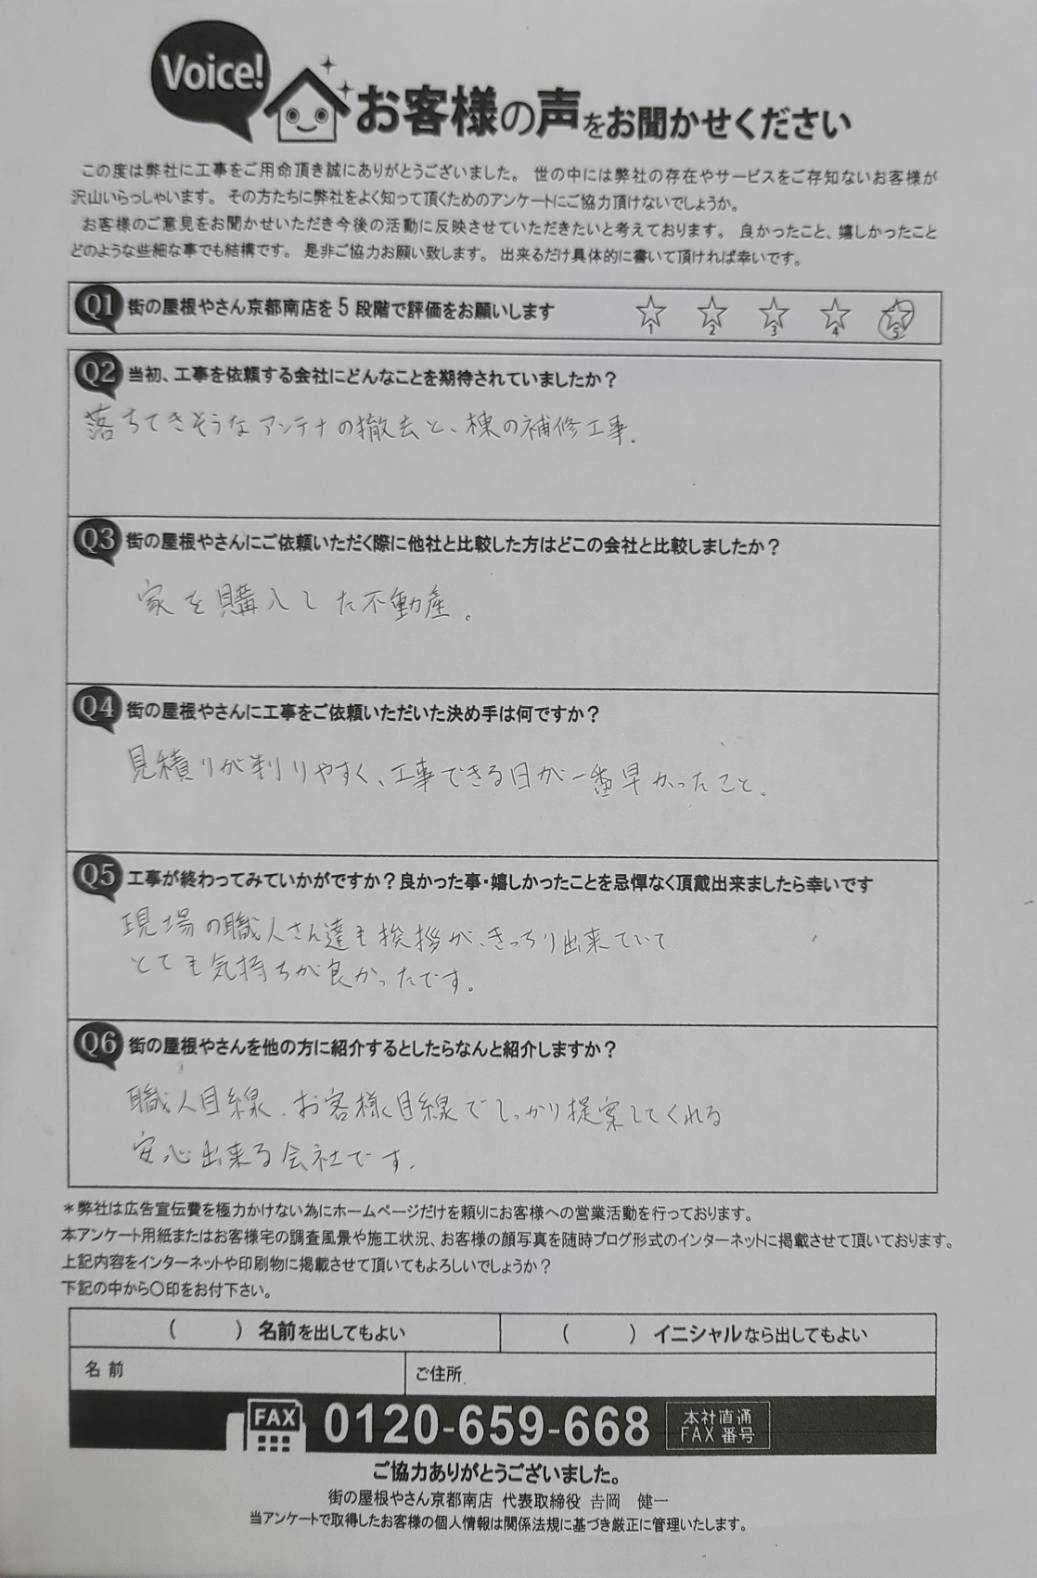 Voice!
お客様の声をお聞かせください
この度は弊社に工事をご用命頂き誠にありがとうございました。 世の中には弊社の存在やサービスをご存知ないお客様が
沢山いらっしゃいます。 その方たちに弊社をよく知って頂くためのアンケートにご協力頂けないでしょうか。
お客様のご意見をお聞かせいただき今後の活動に反映させていただきたいと考えております。 良かったこと、嬉しかったこと
どのような些細な事でも結構です。 是非ご協力お願い致します。 出来るだけ具体的に書いて頂ければ幸いです。
Q1 街の屋根やさん京都南店を5段階で評価をお願いします 1 2 3 4 5
Q2 当初、工事を依頼する会社にどんなことを期待されていましたか？
落ちてきそうなアンテナの撤去と、棟の補修工事.
Q3 街の屋根やさんにご依頼いただく際に他社と比較した方はどこの会社と比較しましたか？
家を購入した不動産。
Q4 街の屋根やさんに工事をご依頼いただいた決め手は何ですか？
見積りが判りやすく、工事できる日が一番早かったこと。
Q5 工事が終わってみていかがですか？良かった事・嬉しかったことを忌憚なく頂戴出来ましたら幸いです
現場の職人さん達も挨拶が、きっちり出来ていて
とても気持ちが良かったです。
Q6 街の屋根やさんを他の方に紹介するとしたらなんと紹介しますか？
職人目線、お客様目線でしっかり提案してくれる
安心出来る会社です.
＊弊社は広告宣伝費を極力かけない為にホームページだけを頼りにお客様への営業活動を行っております。
本アンケート用紙またはお客様宅の調査風景や施工状況、お客様の顔写真を随時ブログ形式のインターネットに掲載させて頂いております。
上記内容をインターネットや印刷物に掲載させて頂いてもよろしいでしょうか？
下記の中から〇印をお付下さい。
（　　）名前を出してもよい （　　）イニシャルなら出してもよい
名前 ご住所
FAX 0120-659-668 本社直通
FAX番号
ご協力ありがとうございました。
街の屋根やさん京都南店 代表取締役 吉岡 健一
当アンケートで取得したお客様の個人情報は関係法規に基づき厳正に管理いたします。